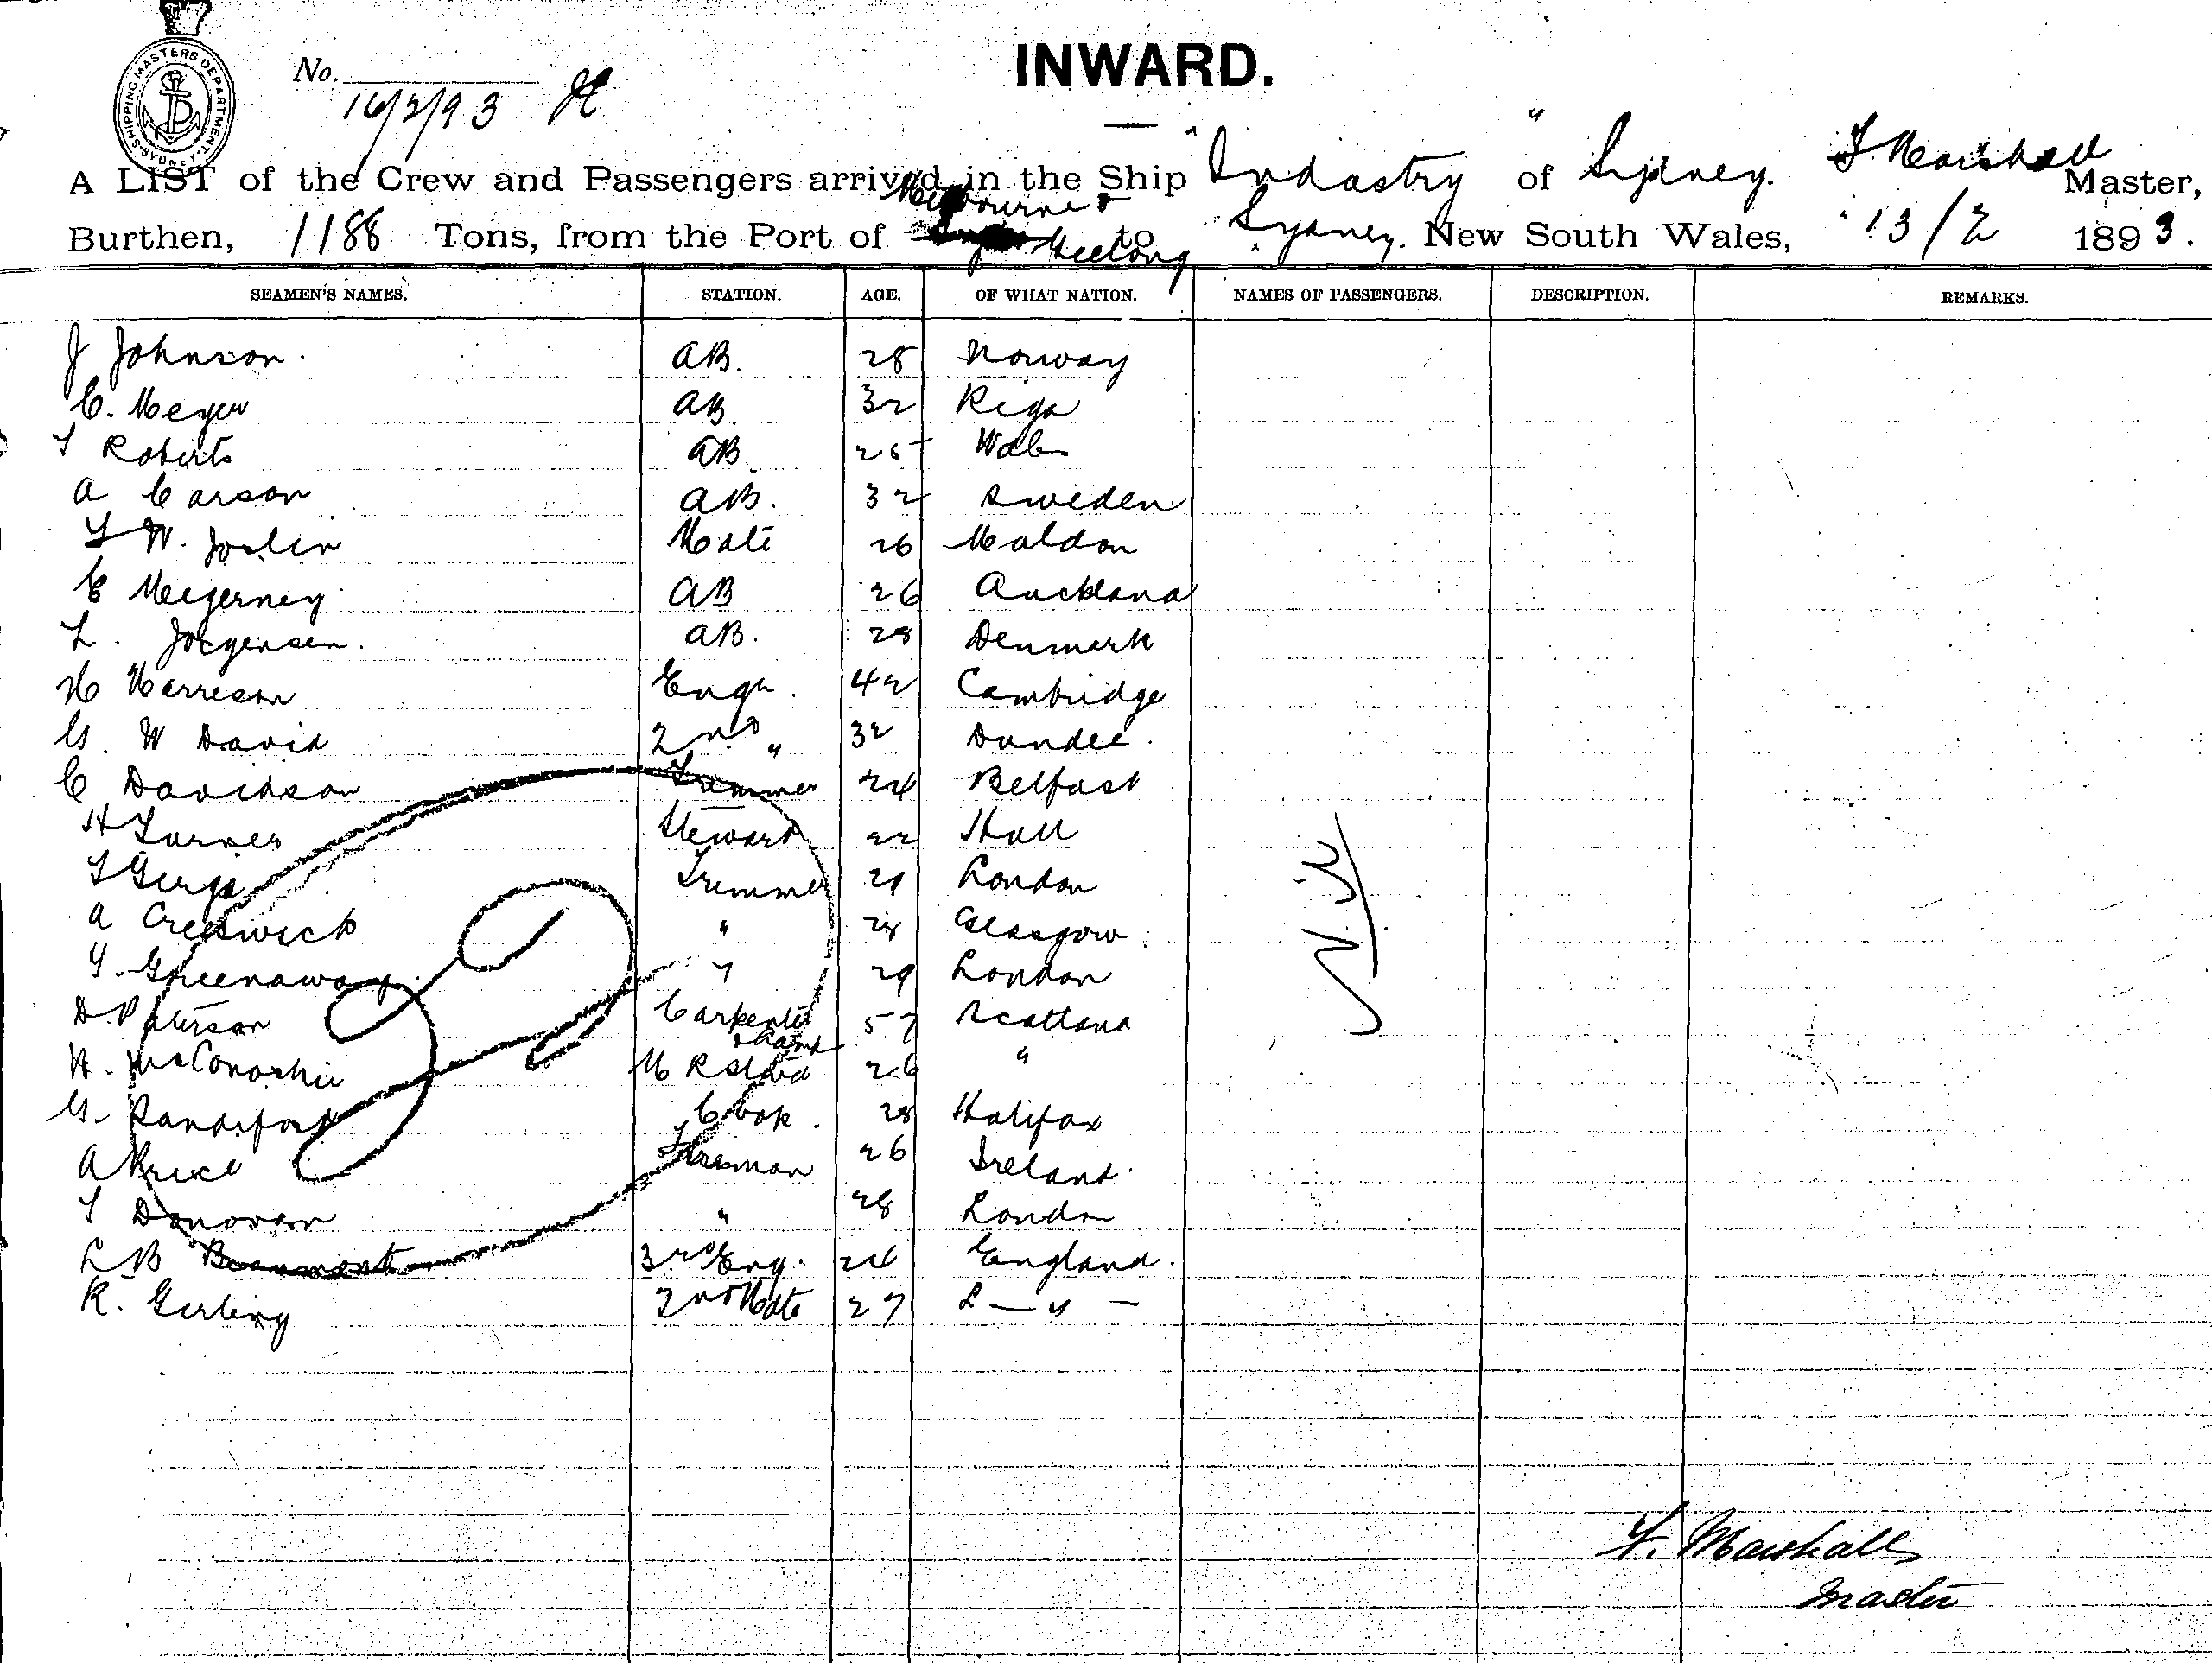 SHIPPING MASTERS DEPARTMENT. SYDNEY
No.
16/2/93
INWARD.
A LIST of the Crew and Passengers arrived in the Ship "Industry" of Sydney. F. Marshall Master,
Melbourne &
Burthen, 1188 Tons, from the Port of Geelong to Sydney. New South Wales, 13/2 1893.
SEAMEN'S NAMES. STATION. AGE. OF WHAT NATION. NAMES OF PASSENGERS. DESCRIPTION. REMARKS.
J Johnson. AB. 28 Norway
C. Meyer AB. 32 Riga
T Roberts AB. 25 Wales
A Carson AB. 32 Sweden
W. Joslin Mate 26 Maldon
C AB 26 Auckland
L. Jorgensen. AB. 28 Denmark
H Harreson Engr. 42 Cambridge
G. W David 2nd " 32 Dundee.
C Davidson Trimmer 24 Belfast
H Turner Steward 22 Hull
Trimmer 21 London
A Creswick " 28 Glasgow.
Greenaway " 29 London
D. Paterson Carpenter & Lamps 57 Scotland
H. McConachie M R Stwd 26 "
G. Sandiford Cook. 28 Halifax
A Price Fireman 26 Ireland.
T Donovan " 28 London
L B Beaumont 3rd Eng. 24 England.
R. Gerling 2nd Mate 27 D — " —
Nil
F. Marshall
Master